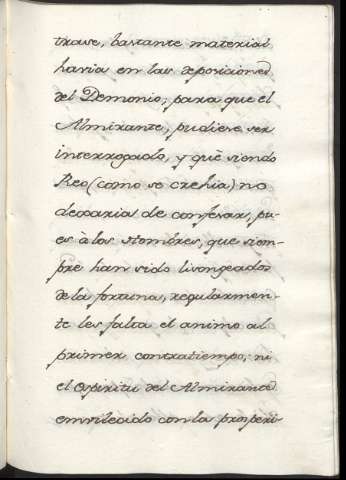 trase, bastante material
havia en las deposiciones
del Demonio, para que el
Almirante, pudiese ser
interrogado, y què siendo
Reo (como se crehia) no
dexaria de confesar, pu-
es à los Hombres, que siem-
pre han sido lisongeados
de la fortuna, regularmen-
te les falta el animo al
primer contratiempo; ni
el espiritu del Almirante
envilecido con la prosperi-